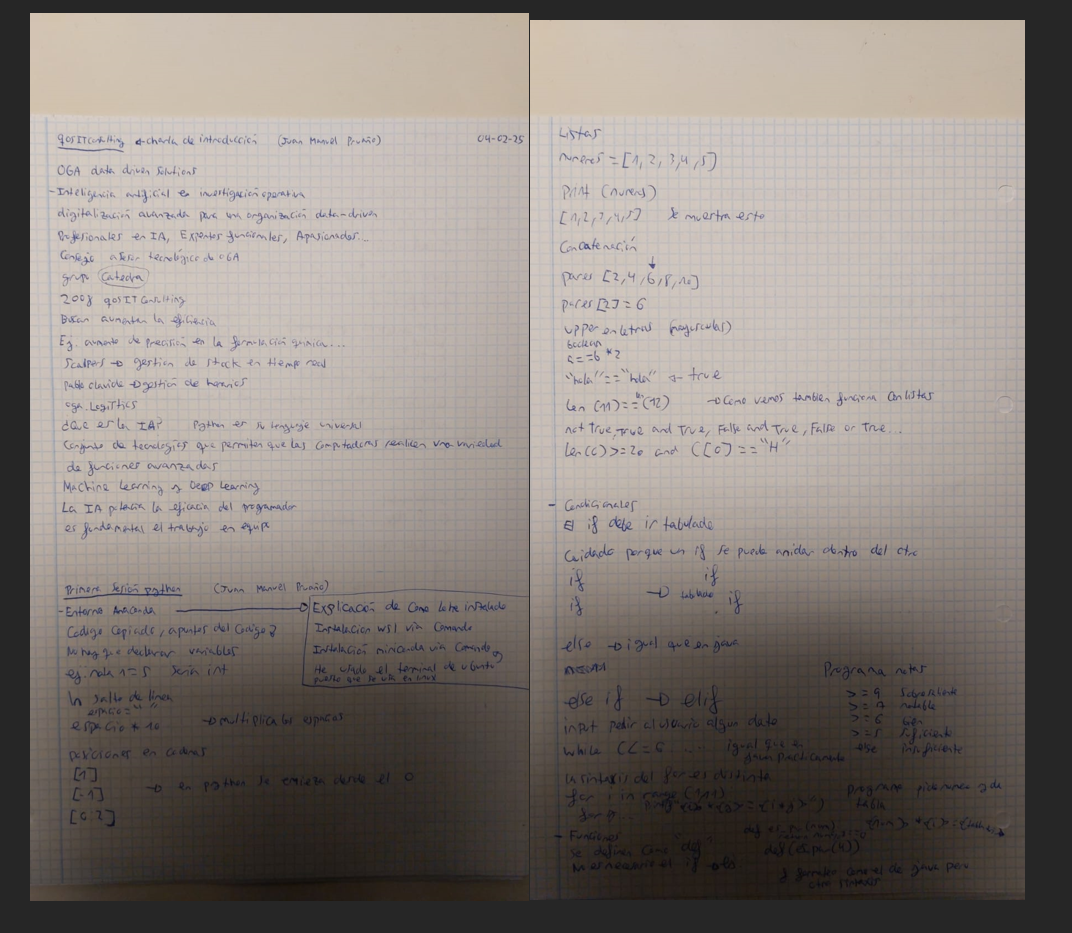 qosITConsulting charla de introducción (Juan Manuel) 04-02-25
OGA data driven solutions
- Inteligencia artificial en investigación operativa
digitalización avanzada para una organización data-driven
Profesionales en IA, Expertos funcionales, Apasionados...
Consejo asesor tecnológico de OGA
grupo Catedra
2008 qosITConsulting
Buscan aumentar la eficiencia
Eg. aumento de precisión en la formulación quimica...
Scalpers → gestion de stock en tiempo real
pablo olavide → gestión de horarios
oga.Logistics
¿Que es la IA? Python es su lenguaje universal
Conjunto de tecnologias que permiten que las computadoras realicen una variedad
de funciones avanzadas
Machine Learning y Deep Learning
La IA potencia la eficacia del programador
es fundamental el trabajo en equipo
Primera Sesión python (Juan Manuel)
- Entorno Anaconda → Explicación de como lo he instalado
Codigo Copiado, apuntes del codigo
Instalacion wsl via Comando
No hay que declarar variables
Instalación miniconda via Comando
eg. nota 1 = 5 Seria int
He usado el terminal de ubuntu
puesto que se usa en linux
\n salto de linea
espacio = " "
espacio * 10 → multiplica los espacios
posiciones en cadenas
[1]
[-1] → en python se empieza desde el 0
[0:2]
Listas
numeros = [1, 2, 3, 4, 5]
Print (numeros)
[1,2,3,4,5] Se muestra esto
Concatenación
pares [2,4,6,8,10]
pares[2] = 6
upper en letras (mayusculas)
boolean
"hola"=="hola" → true
→ Como vemos tambien funciona con listas
not True, True and True, False and True, False or True...
len(c)>=20 and C[0]=="H"
- Condicionales
El if debe ir tabulado
Cuidado porque un if se puede anidar dentro del otro
if if
if → tabulado if
else → igual que en java
Programa notas
else if → elif
>= 9 Sobresaliente
>= 7 notable
>= 6 bien
input pedir al usuario algun dato
>= 5 suficiente
else insuficiente
while C<=6 ...... igual que en
java practicamente
la sintaxis del for es distinta
for i in range (1,11)
- Funciones
Se definen como "def"